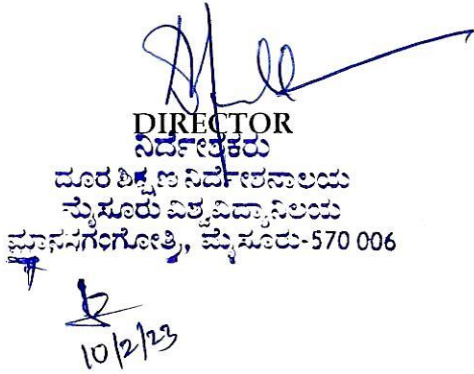 DIRECTOR
ನಿರ್ದೇಶಕರು
ದೂರ ಶಿಕ್ಷಣ ನಿರ್ದೇಶನಾಲಯ
ಮೈಸೂರು ವಿಶ್ವವಿದ್ಯಾನಿಲಯ
ಮಾನಸಗಂಗೋತ್ರಿ, ಮೈಸೂರು-570 006
10/2/23